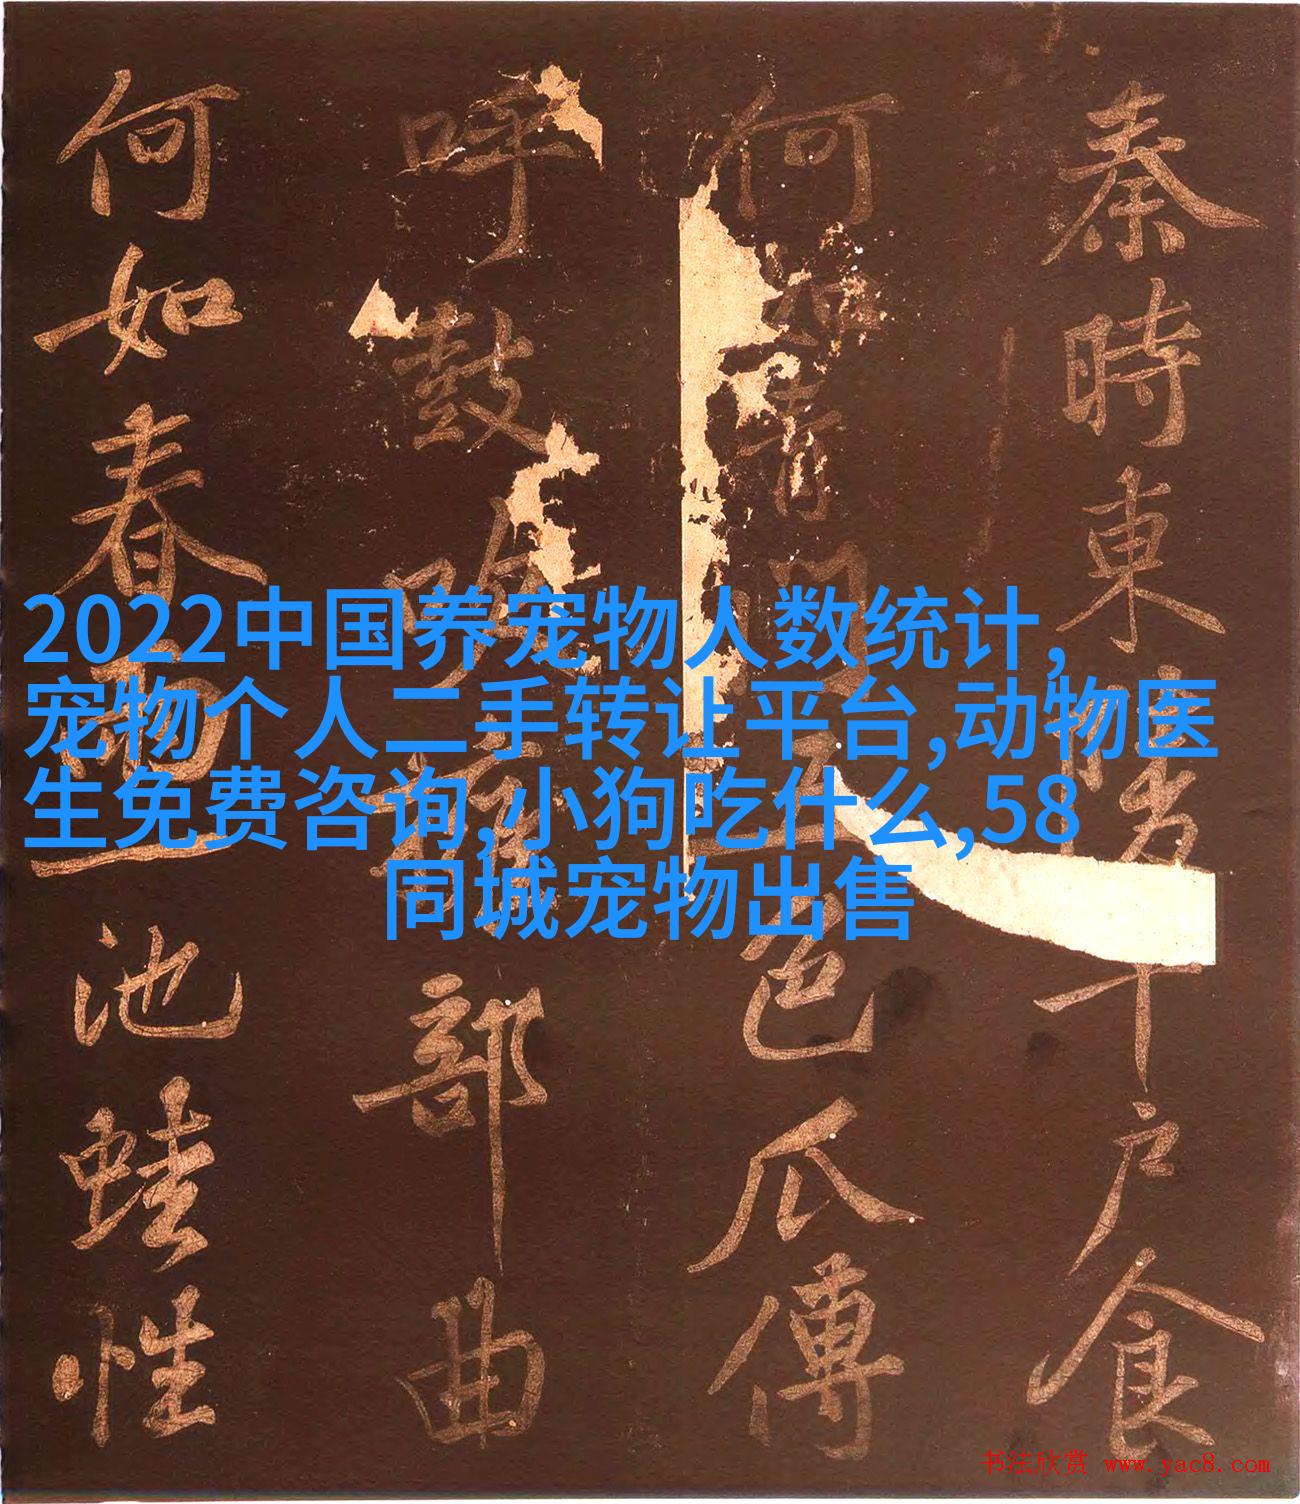 秦時東陵千戶食
何如青門五色瓜傳
呼鼓吹擁部曲
何如春雨池蛙性
2022中国养宠物人数统计,
宠物个人二手转让平台,动物医
生免费咨询,小狗吃什么,58
同城宠物出售
书法欣赏 www.yac8.com